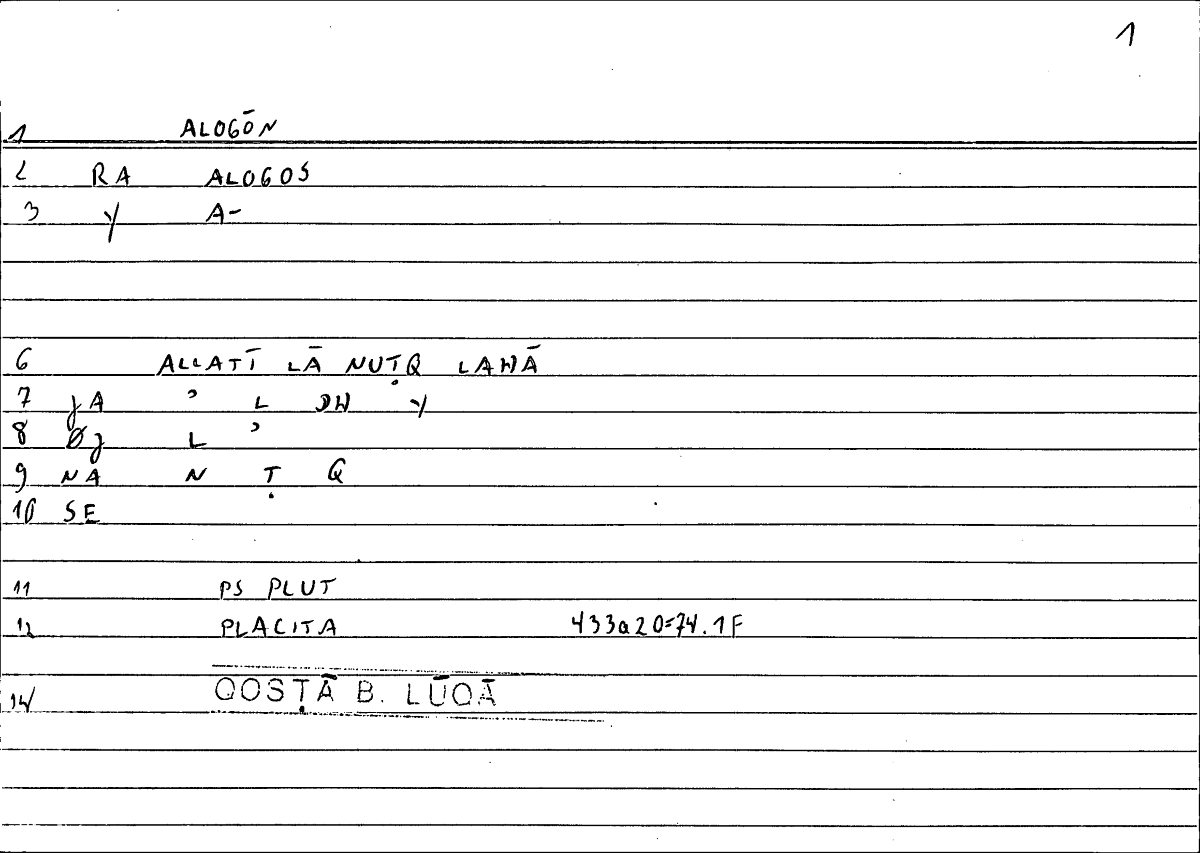 1
1 ALOGŌN
2 RA ALOGOS
3 Y A-
6 ALLATĪ LĀ NUṬQ LAHĀ
7 JA ʾ L DH Y
8 ØJ L ʾ
9 NA N Ṭ Q
10 SE
11 PS PLUT
12 PLACITA 433a20=74.1F
14 QOSṬĀ B. LŪQĀ